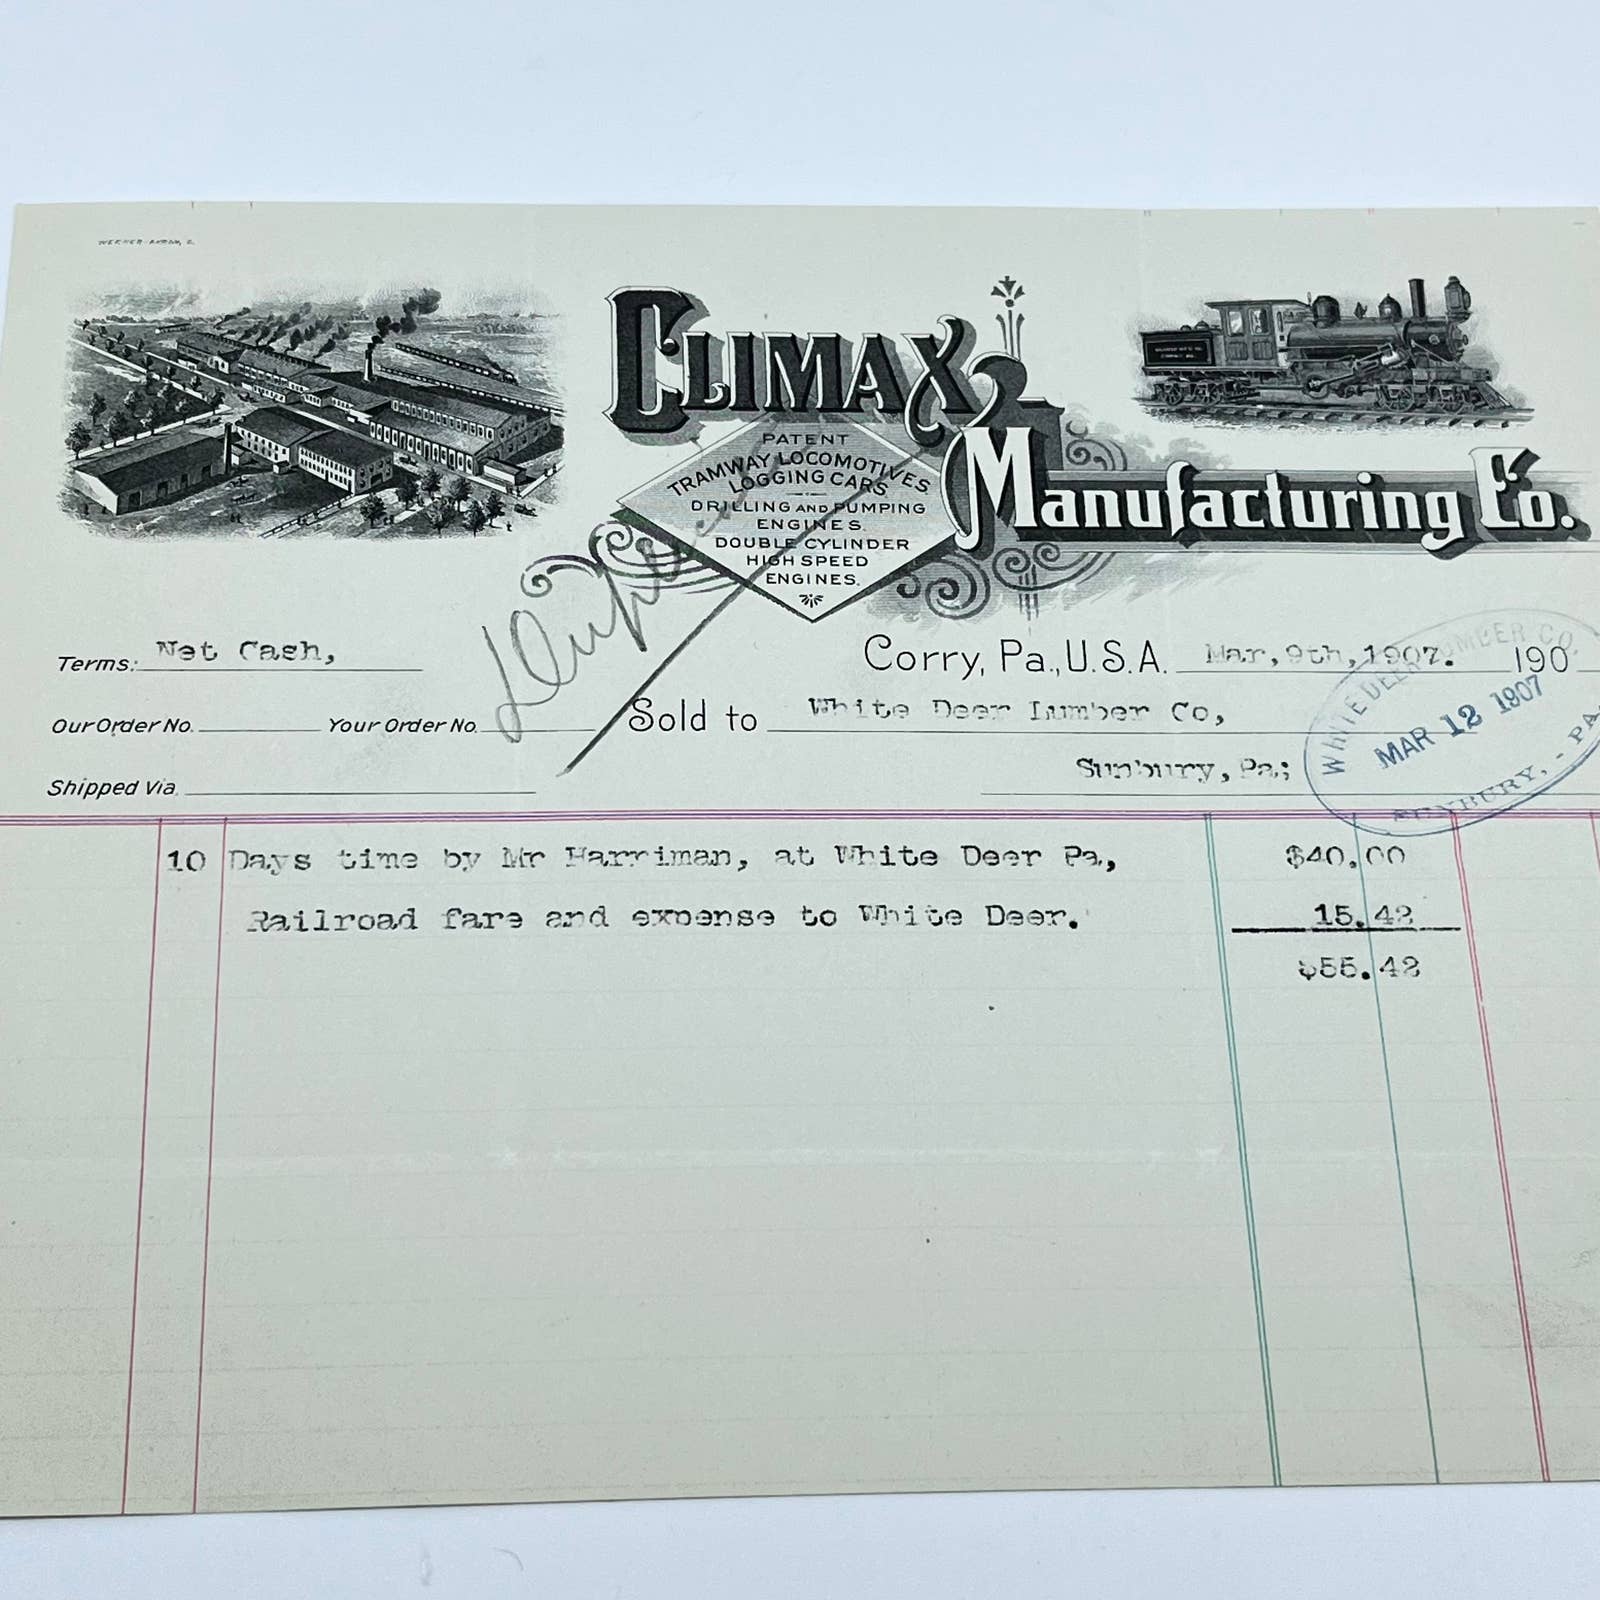 WERNER-AKRON, O.
CLIMAX
Manufacturing Co.
PATENT
TRAMWAY LOCOMOTIVES
LOGGING CARS
DRILLING AND PUMPING
ENGINES.
DOUBLE CYLINDER
HIGH SPEED
ENGINES.
Terms: Net Cash,
Corry, Pa., U.S.A. Mar, 9th, 1907. 190
Our Order No. Your Order No.
Sold to White Deer Lumber Co,
Sunbury, Pa;
Shipped Via
WHITE DEER LUMBER CO.
MAR 12 1907
SUNBURY, - PA.
10 Days time by Mr Harriman, at White Deer Pa, $40.00
Railroad fare and expense to White Deer. 15.42
$55.42